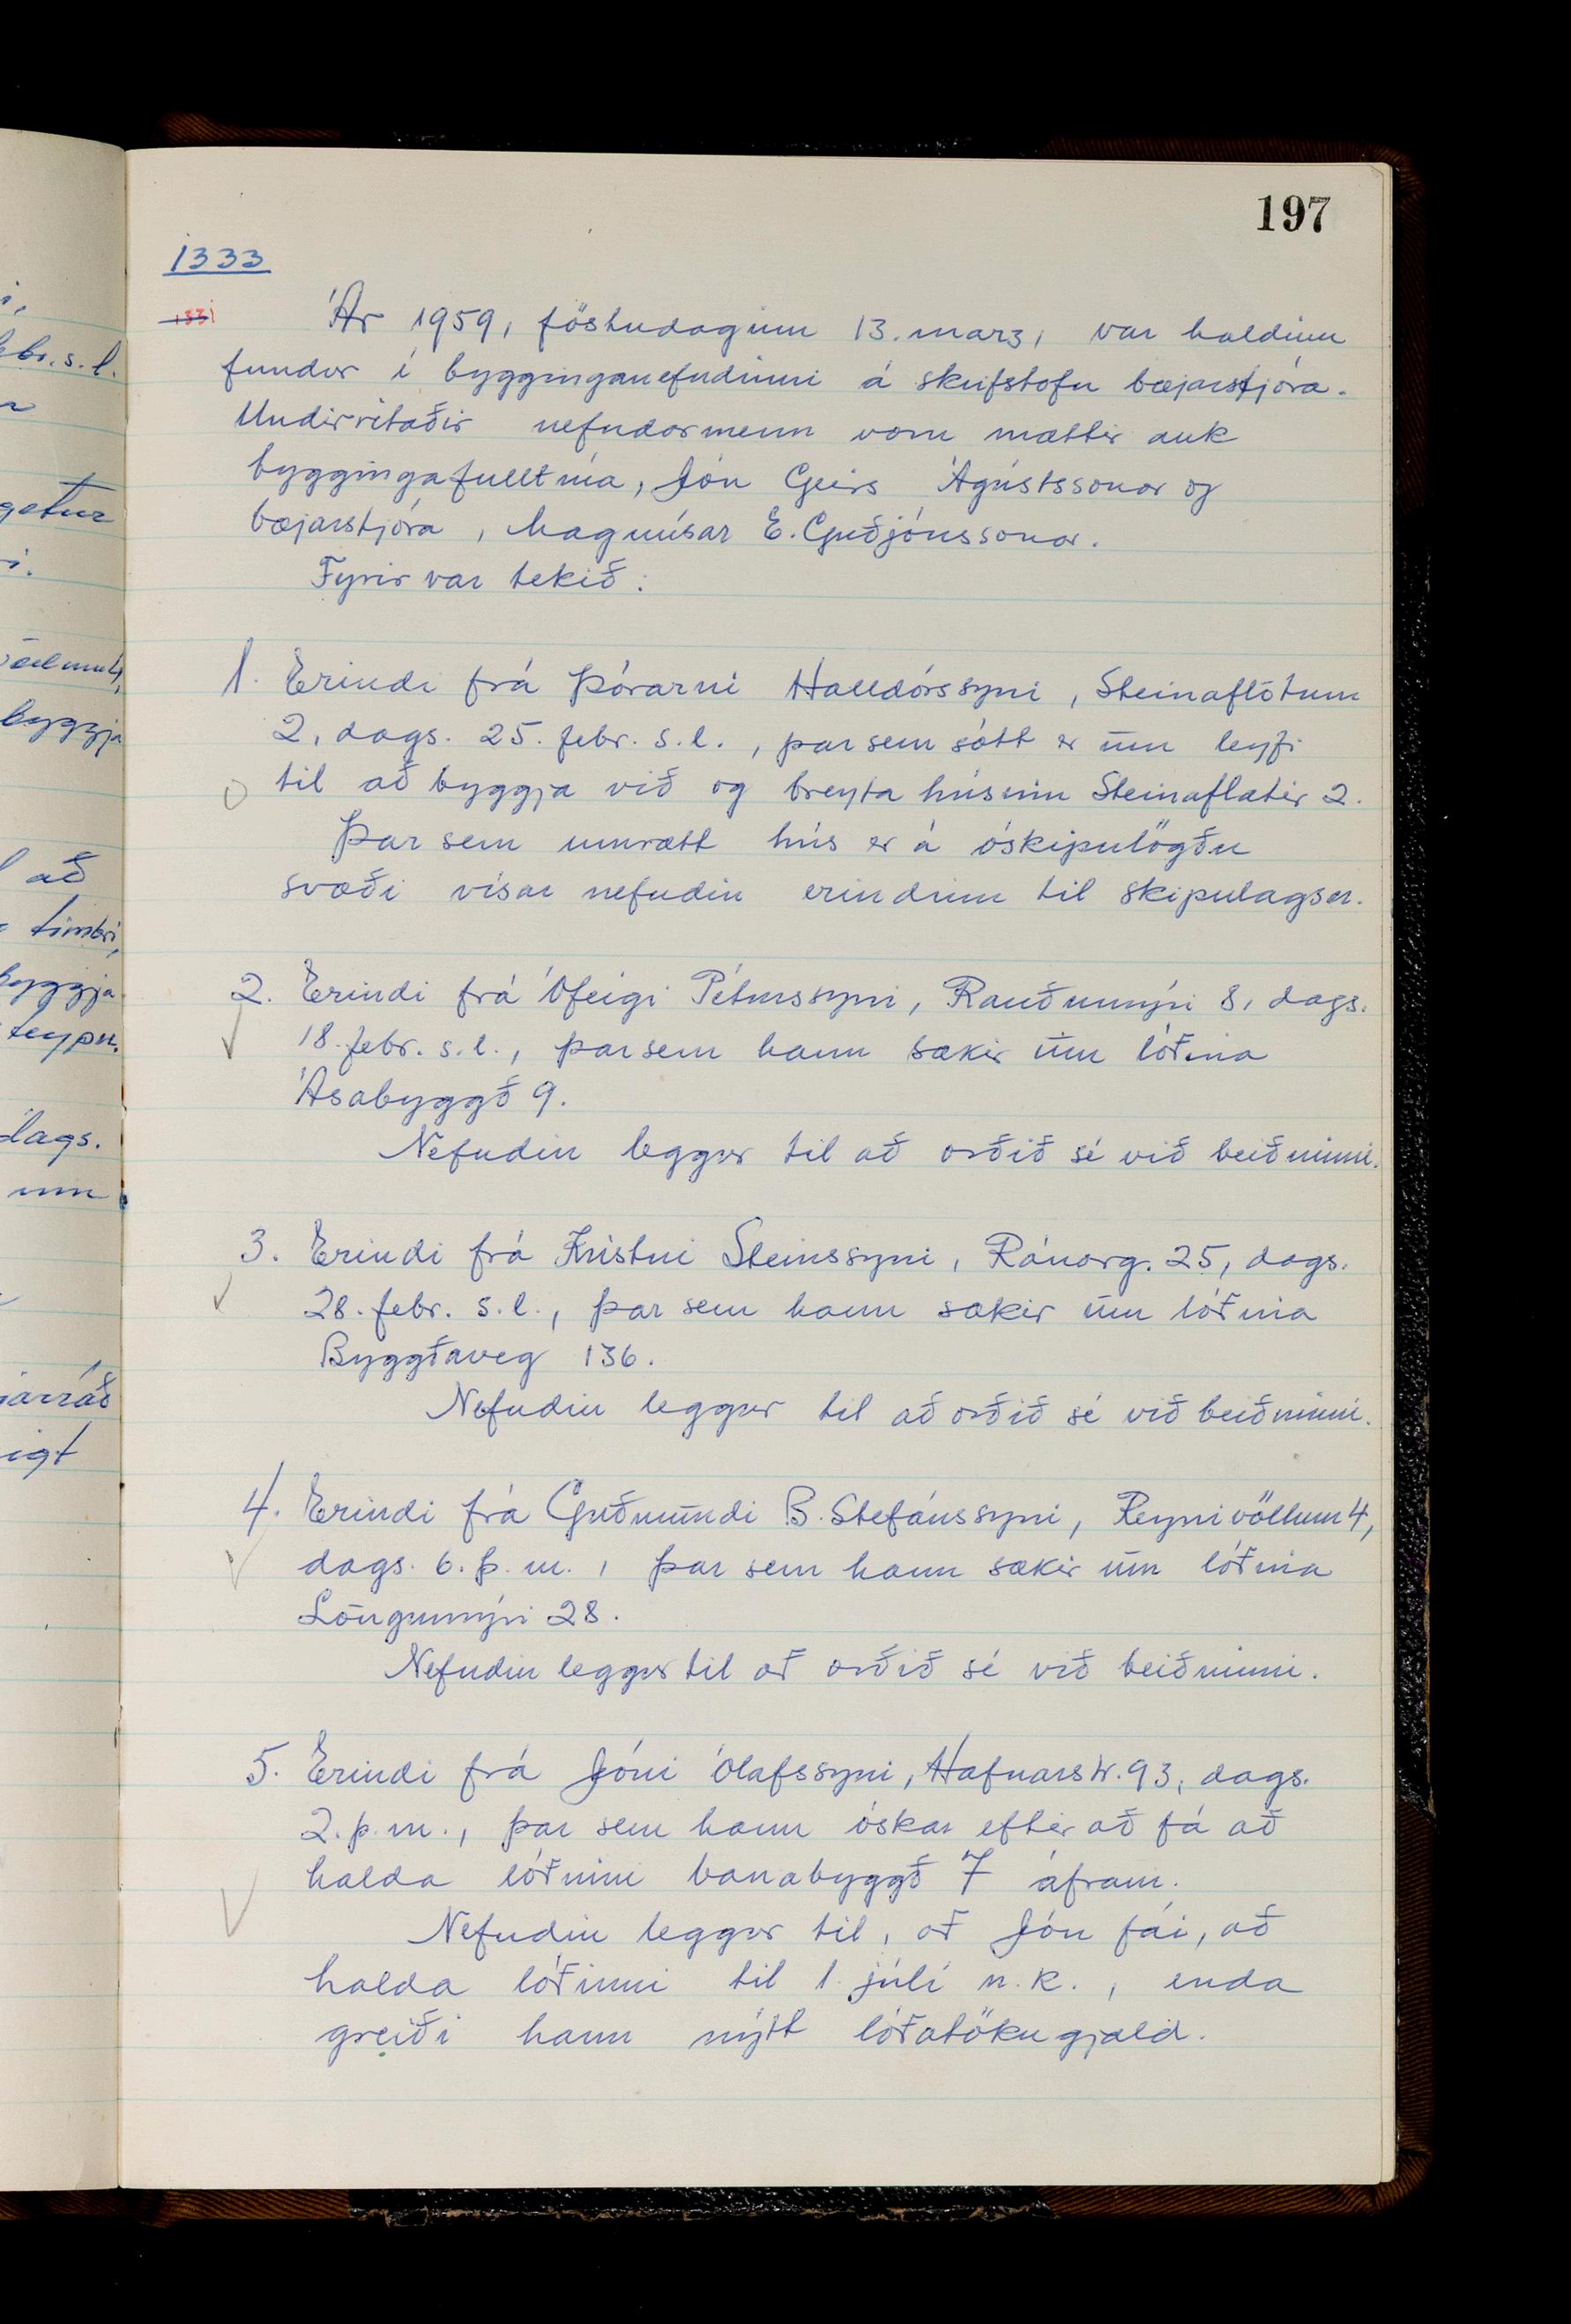 197
1333
1331
Ár 1959, föstudaginn 13. marz, var haldinn
fundur í bygginganefndinni á skrifstofu bæjarstjóra.
Undirritaðir nefndarmenn voru mættir auk
byggingafulltrúa, Jón Geirs Ágústssonar og
bæjarstjóra, Magnúsar E. Guðjónssonar.
Fyrir var tekið:
1. Erindi frá Þórarni Halldórssyni, Steinaflötum
2, dags. 25. febr. s.l., þar sem sótt er um leyfi
til að byggja við og breyta húsinu Steinaflatir 2.
Þar sem umrætt hús er á óskipulögðu
svæði vísar nefndin erindinu til skipulagsn.
2. Erindi frá Ófeigi Péturssyni, Rauðumýri 8, dags.
18. febr. s.l., þar sem hann sækir um lóðina
Ásabyggð 9.
Nefndin leggur til að orðið sé við beiðninni.
3. Erindi frá Kristni Steinssyni, Ránarg. 25, dags.
28. febr. s.l., þar sem hann sækir um lóðina
Byggðaveg 136.
Nefndin leggur til að orðið sé við beiðninni.
4. Erindi frá Guðmundi B. Stefánssyni, Reynivöllum 4,
dags. 6. þ.m., þar sem hann sækir um lóðina
Löngumýri 28.
Nefndin leggur til að orðið sé við beiðninni.
5. Erindi frá Jóni Ólafssyni, Hafnarstr. 93, dags.
2. þ.m., þar sem hann óskar eftir að fá að
halda lóðinni Vanabyggð 7 áfram.
Nefndin leggur til, að Jón fái, að
halda lóðinni til 1. júlí n.k., enda
greiði hann nýtt lóðatökugjald.